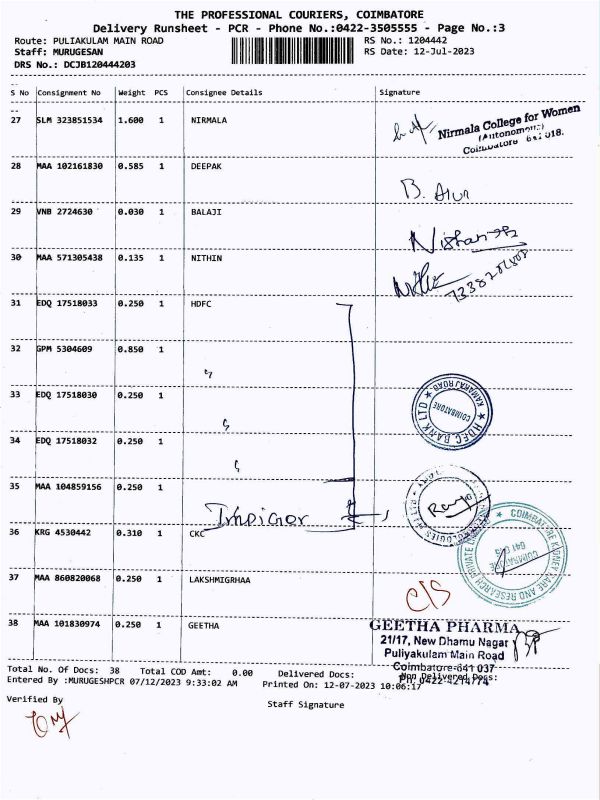 THE PROFESSIONAL COURIERS, COIMBATORE
Delivery Runsheet - PCR - Phone No.:0422-3505555 - Page No.:3
Route: PULIAKULAM MAIN ROAD RS No.: 1204442
Staff: MURUGESAN RS Date: 12-Jul-2023
DRS No.: DCJB120444203
S No Consignment No Weight PCS Consignee Details Signature
27 SLM 323851534 1.600 1 NIRMALA
Nirmala College for Women
(Autonomous)
Coimbatore 641 018.
28 MAA 102161830 0.585 1 DEEPAK
B.
29 VNB 2724630 0.030 1 BALAJI
Nishanth
30 MAA 571305438 0.135 1 NITHIN
31 EDQ 17518033 0.250 1 HDFC
32 GPM 5304609 0.850 1
33 EDQ 17518030 0.250 1
HDFC BANK LTD ★ KAMARAJ ROAD ★
COIMBATORE
34 EDQ 17518032 0.250 1
35 MAA 104859156 0.250 1
Impiger
36 KRG 4530442 0.310 1 CKC
COIMBATORE KIDNEY CARE AND RESEARCH PRIVATE
COIMBATORE
37 MAA 860820068 0.250 1 LAKSHMIGRHAA
C/S
38 MAA 101830974 0.250 1 GEETHA
GEETHA PHARMA
21/17, New Dhamu Nagar
Puliyakulam Main Road
Coimbatore-641 037
Ph: 0422-4214774
Total No. Of Docs: 38 Total COD Amt: 0.00 Delivered Docs: Non Delivered Docs:
Entered By :MURUGESHPCR 07/12/2023 9:33:02 AM Printed On: 12-07-2023 10:06:17
Verified By Staff Signature